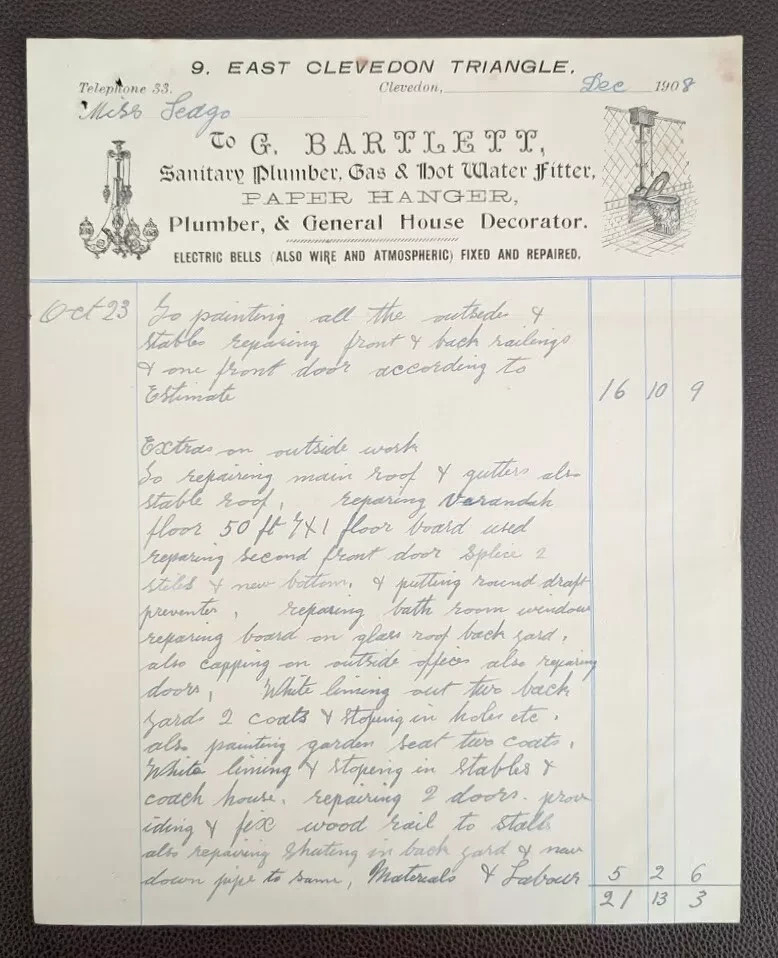 9. EAST CLEVEDON TRIANGLE.
Telephone 33. Clevedon, Dec 1908
Miss Sedgo
To G. BARTLETT,
Sanitary Plumber, Gas & Hot Water Fitter,
PAPER HANGER,
Plumber, & General House Decorator.
ELECTRIC BELLS (ALSO WIRE AND ATMOSPHERIC) FIXED AND REPAIRED.
Oct 23 To painting all the outsides &
stables repairing front & back railings
& one front door according to
Estimate 16 10 9
Extras on outside work
To repairing main roof & gutters also
stable roof, repairing Verandah
floor 50 ft 7x1 floor board used
repairing second front door splice 2
stiles & new bottom, & putting round draft
preventer, repairing bath room window
repairing board on glass roof back yard,
also capping on outside offices also repairing
doors, White liming out two back
yards 2 coats & stoping in holes etc.
also painting garden seat two coats,
White liming & stopeing in stables &
coach house. repairing 2 doors. prov
iding & fix wood rail to stalls
also repairing Shuting in back yard & new
down pipe to same, Materials & Labour 5 2 6
21 13 3